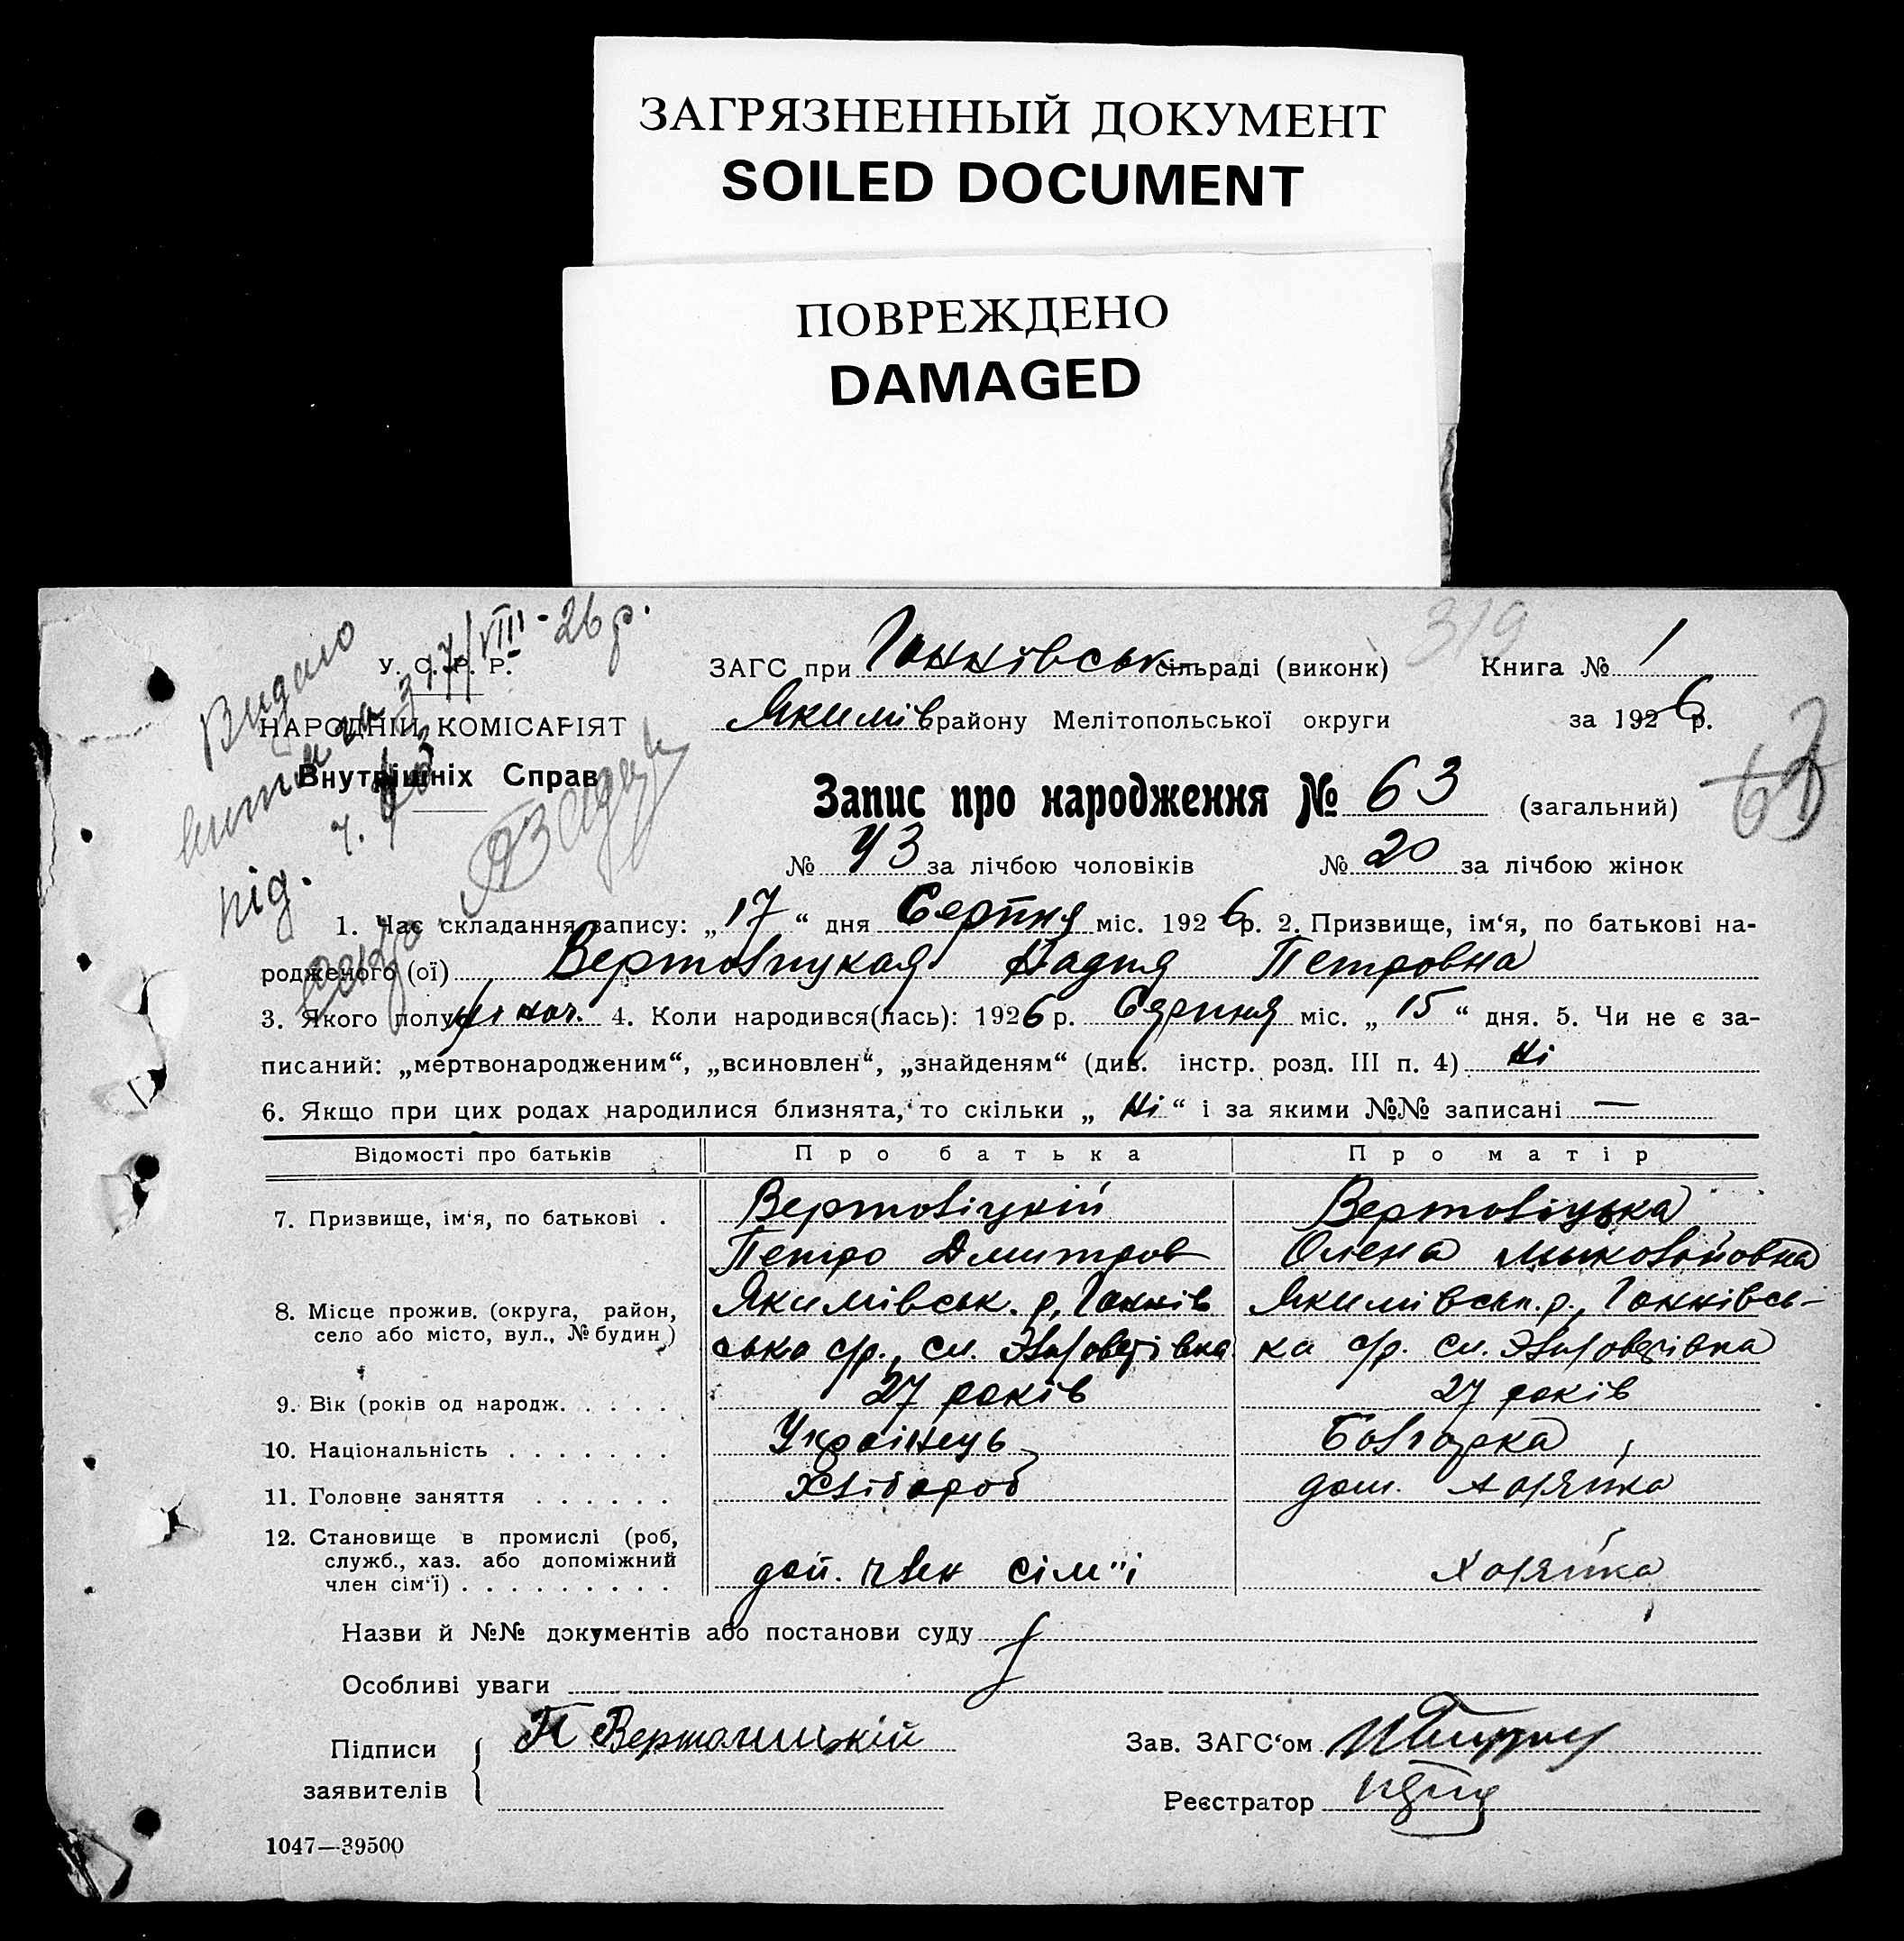 ЗАГРЯЗНЕННЫЙ ДОКУМЕНТ
SOILED DOCUMENT
ПОВРЕЖДЕНО
DAMAGED
319
Видано
витяг за з 17/VIII-26 р.
ч. 63
під.
У. С. Р. Р.
НАРОДНІЙ КОМІСАРІЯТ
Внутрішніх Справ
ЗАГС при Ганнівськ сільраді (виконк) Книга № 1
Якимів району Мелітопольської округи за 1926 р.
63
Запис про народження № 63 (загальний)
№ 43 за лічбою чоловіків № 20 за лічбою жінок
1. Час складання запису: „17“ дня Серпня міс. 1926 р. 2. Призвище, ім‘я, по батькові на-
родженого (ої) Вертовицкая Надия Петровна
3. Якого полу жіноч. 4. Коли народився(лась): 1926 р. Серпня міс. „15“ дня. 5. Чи не є за-
писаний: „мертвонародженим“, „всиновлен“, „знайденям“ (див. інстр. розд. III п. 4) Ні
6. Якщо при цих родах народилися близнята, то скільки „Ні“ і за якими №№ записані —
Відомості про батьків Про батька Про матір
7. Призвище, ім‘я, по батькові . Вертовіцкій Вертовіцька
Петро Дмитров Олена
8. Місце прожив. (округа, район, Якимівськ. р, Ганнів Якимівськ. р., Ганнівсь-
село або місто, вул., № будин.) ська с/р., см. Єлізоветівка ка с/р. см. Єлізоветівка
9. Вік (років од народж. . . . . 27 років 27 років
10. Національність . . . . . . . Українець Болгарка
11. Головне заняття . . . . . . Хлібороб дом. хазяйка
12. Становище в промислі (роб,
служб., хаз. або допоміжний
член сім‘ї) . . . . . . . . . доп. член сім"ї Хазяйка
Назви й №№ документів або постанови суду
Особливі уваги
Підписи П Вертовицкій Зав. ЗАГС‘ом
заявителів Реєстратор
1047—39500